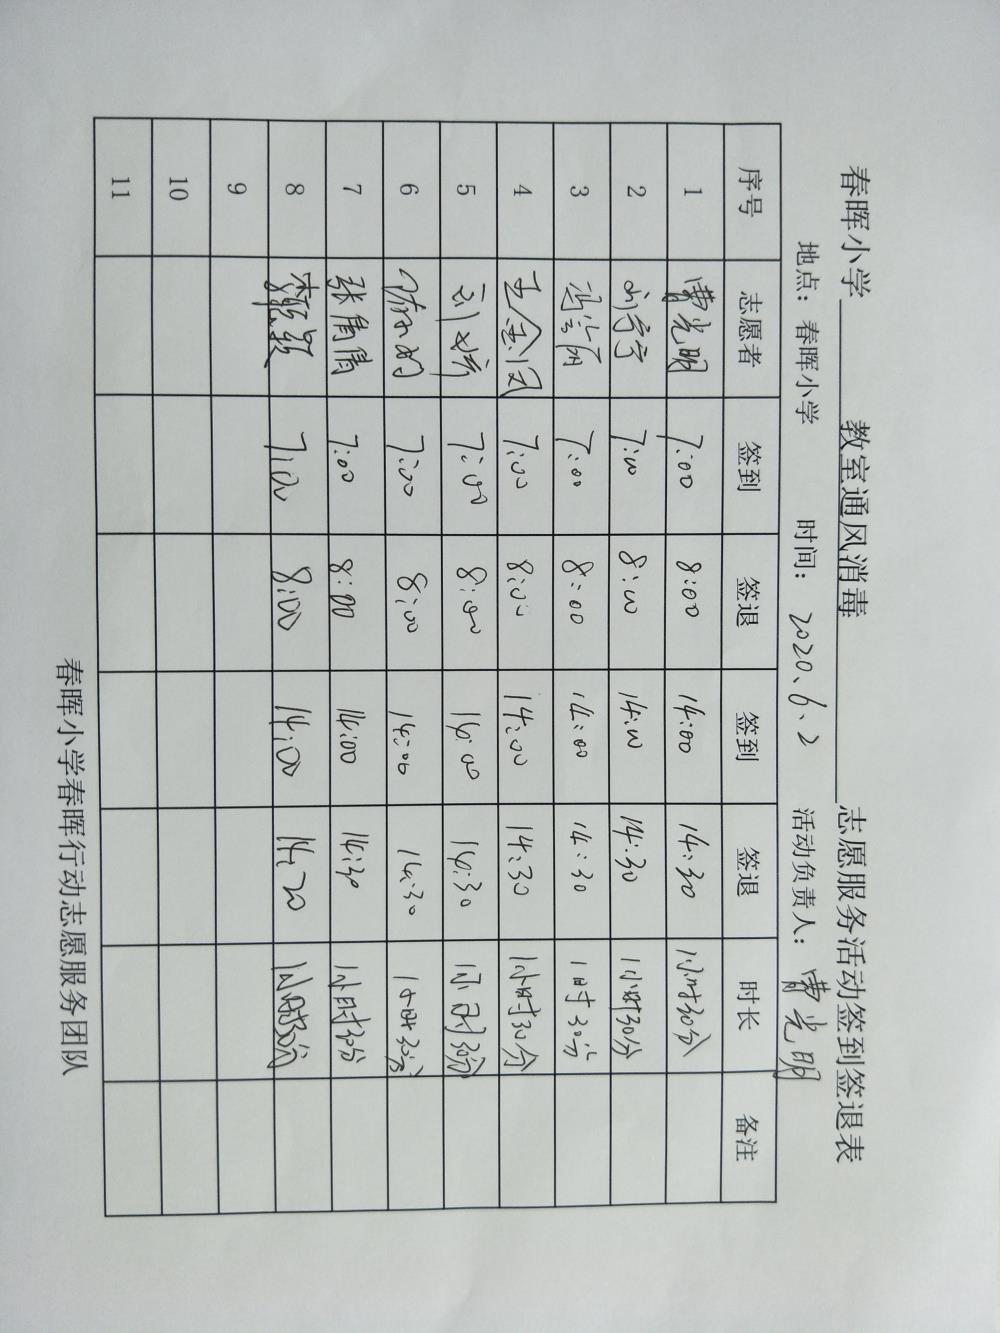 春晖小学 教室通风消毒 志愿服务活动签到签退表
地点：春晖小学 时间：2020、6、2 活动负责人：曹光明
序号 志愿者 签到 签退 签到 签退 时长 备注
1 曹光明 7:00 8:00 14:00 14:30 1小时30分
2 刘宁宁 7:00 8:00 14:00 14:30 1小时30分
3 7:00 8:00 14:00 14:30 1时30分
4 王金凤 7:00 8:00 14:00 14:30 1小时30分
5 刘 7:00 8:00 14:00 14:30 1小时30分
6 7:00 8:00 14:00 14:30 1小时30分
7 张倩倩 7:00 8:00 14:00 14:30 1小时30分
8 7:00 8:00 14:00 14:20 1小时30分
9
10
11
春晖小学春晖行动志愿服务团队